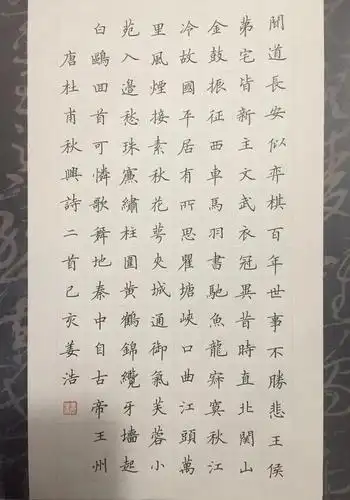 聞道長安似弈棋百年世事不勝悲王侯
第宅皆新主文武衣冠異昔時直北關山
金鼓振征西車馬羽書馳魚龍寂寞秋江
冷故國平居有所思瞿塘峽口曲江頭萬
里風煙接素秋花萼夾城通御氣芙蓉小
苑入邊愁珠簾繡柱圍黄鶴錦纜牙墻起
白鷗回首可憐歌舞地秦中自古帝王州
唐杜甫秋興詩二首己亥姜浩